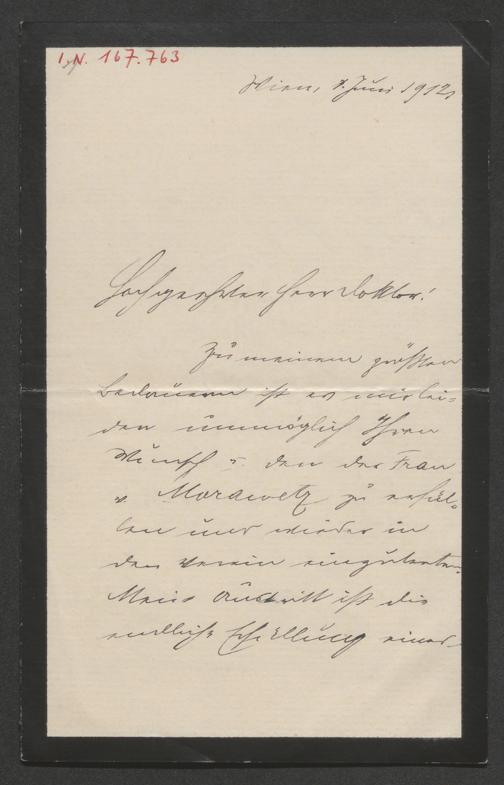 I. N. 167.763
Wien, 7. Juni 1912,
Hochgeehrter Herr Doktor!
Zu meinem größten
Bedauern ist es mir lei-
der unmöglich Ihren
Wunsch u. den der Frau
v. Morawetz zu erfül-
len und wieder in
den Verein einzutreten.
Mein Austritt ist die
endliche Erfüllung eines